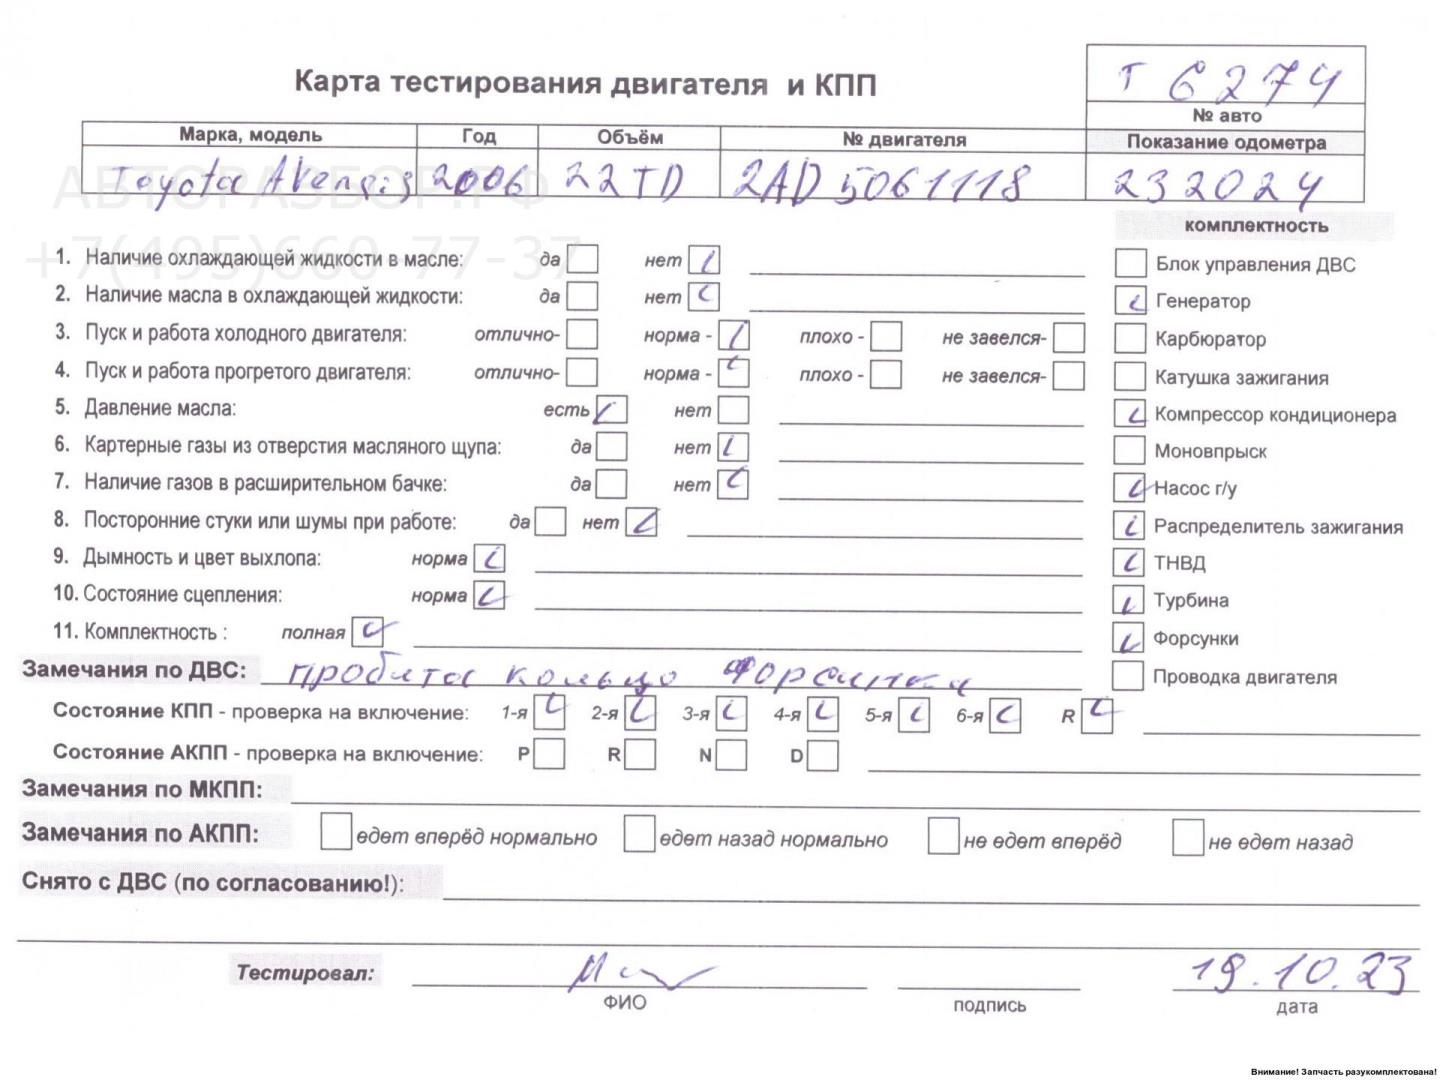 Т 6274
Карта тестирования двигателя и КПП
№ авто
Марка, модель Год Объём № двигателя Показание одометра
Toyota Avensis 2006 22TD 2AD 5061118 232024
АВТОРАЗБОР.РФ
+7(495)660-77-37
комплектность
1. Наличие охлаждающей жидкости в масле: да нет Блок управления ДВС
2. Наличие масла в охлаждающей жидкости: да нет Генератор
3. Пуск и работа холодного двигателя: отлично- норма - плохо - не завелся- Карбюратор
4. Пуск и работа прогретого двигателя: отлично- норма - плохо - не завелся- Катушка зажигания
5. Давление масла: есть нет Компрессор кондиционера
6. Картерные газы из отверстия масляного щупа: да нет Моновпрыск
7. Наличие газов в расширительном бачке: да нет Насос г/у
8. Посторонние стуки или шумы при работе: да нет Распределитель зажигания
9. Дымность и цвет выхлопа: норма ТНВД
10. Состояние сцепления: норма Турбина
11. Комплектность : полная Форсунки
Замечания по ДВС: пробита кольцо форсунки Проводка двигателя
Состояние КПП - проверка на включение: 1-я 2-я 3-я 4-я 5-я 6-я R
Состояние АКПП - проверка на включение: P R N D
Замечания по МКПП:
Замечания по АКПП: едет вперёд нормально едет назад нормально не едет вперёд не едет назад
Снято с ДВС (по согласованию!):
Тестировал: 19.10.23
ФИО подпись дата
Внимание! Запчасть разукомплектована!